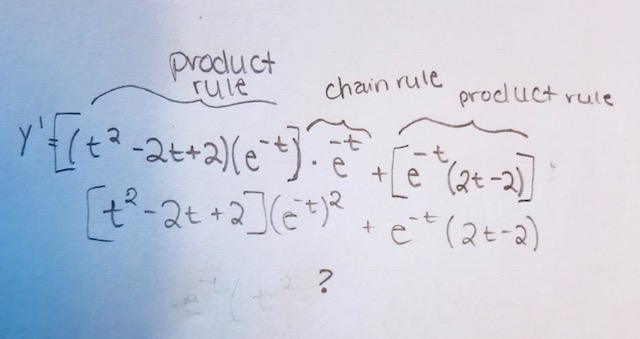 product rule
chain rule
product rule
y'=[(t² -2t+2)(e^-t)] · e^-t + [e^-t (2t-2)]
[t² -2t +2](e^-t)² + e^-t (2t-2)
?